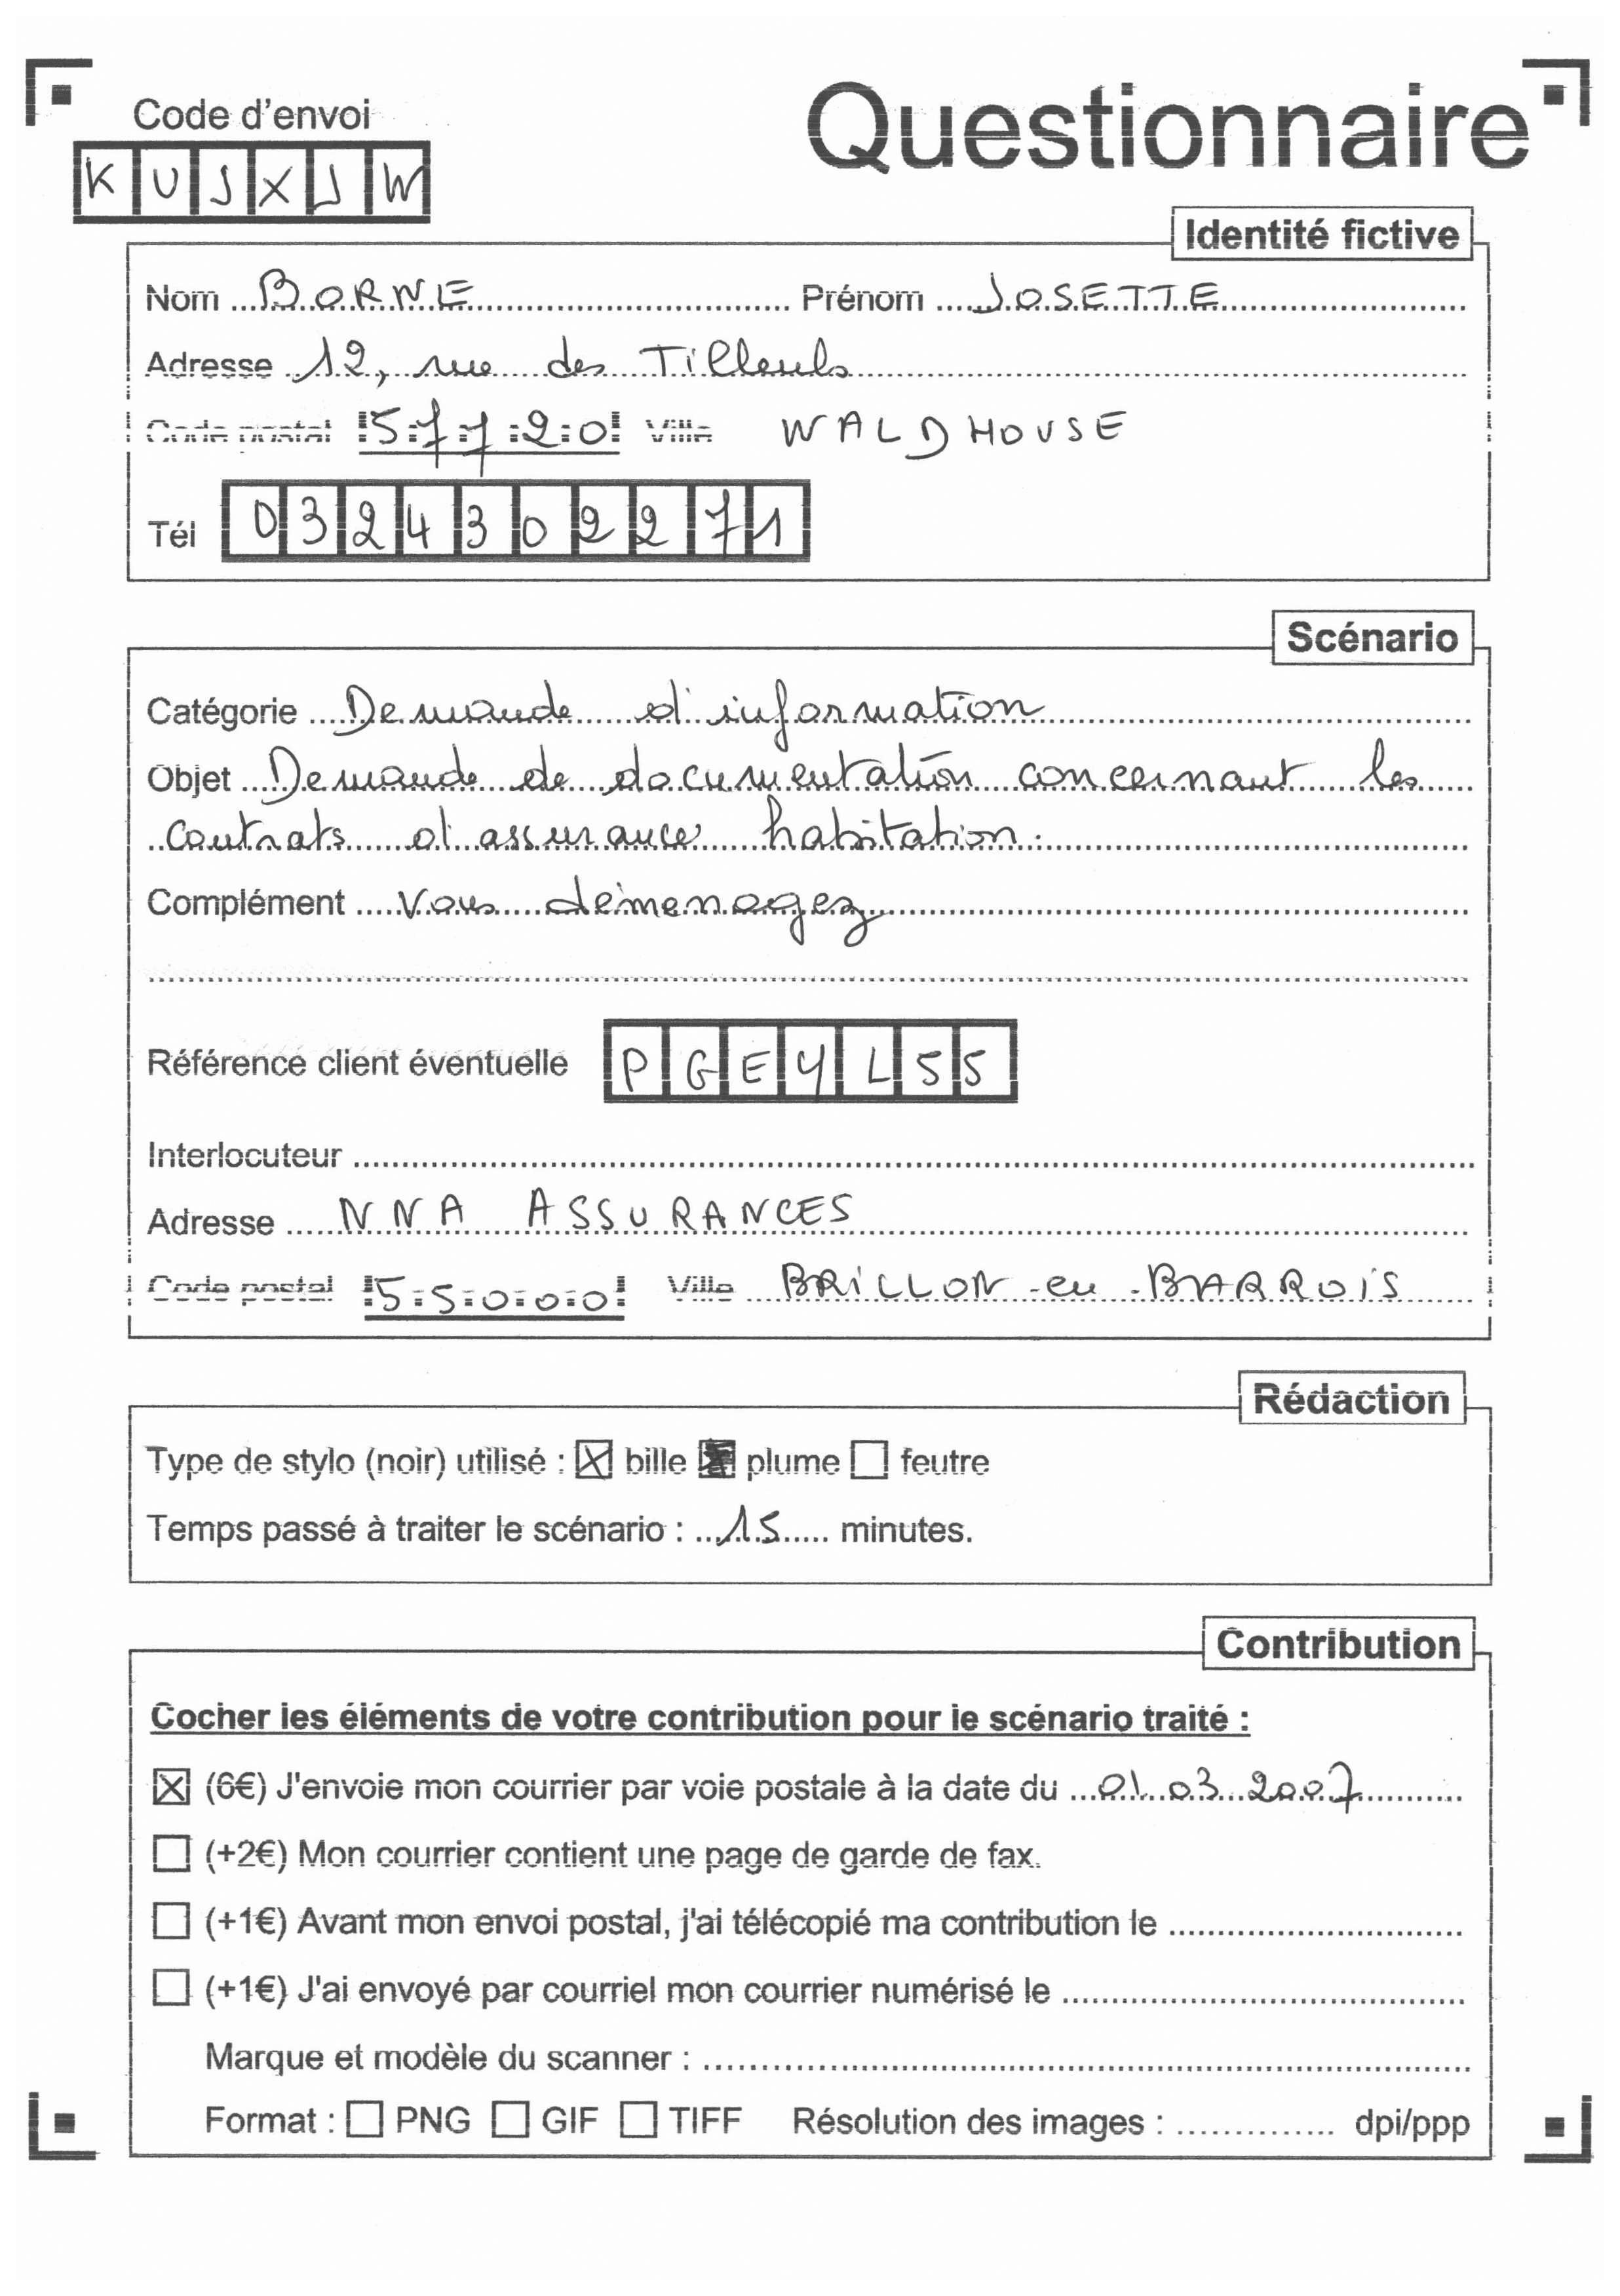 Code d'envoi
KUJXJW
Questionnaire
Identité fictive
Nom BORNE Prénom JOSETTE
Adresse 12, rue des Tilleuls
Code postal 57720 Ville WALDHOUSE
Tél 0324302271
Scénario
Catégorie Demande d'information
Objet Demande de documentation concernant les
contrats d'assurance habitation.
Complément Vous démenagez
Référence client éventuelle PGEYL55
Interlocuteur
Adresse NNA ASSURANCES
Code postal 55000 Ville BRILLON-en-BARROIS
Rédaction
Type de stylo (noir) utilisé : bille plume feutre
Temps passé à traiter le scénario : 15 minutes.
Contribution
Cocher les éléments de votre contribution pour le scénario traité :
(6€) J'envoie mon courrier par voie postale à la date du 01.03.2007
(+2€) Mon courrier contient une page de garde de fax.
(+1€) Avant mon envoi postal, j'ai télécopié ma contribution le
(+1€) J'ai envoyé par courriel mon courrier numérisé le
Marque et modèle du scanner :
Format : PNG GIF TIFF Résolution des images : dpi/ppp